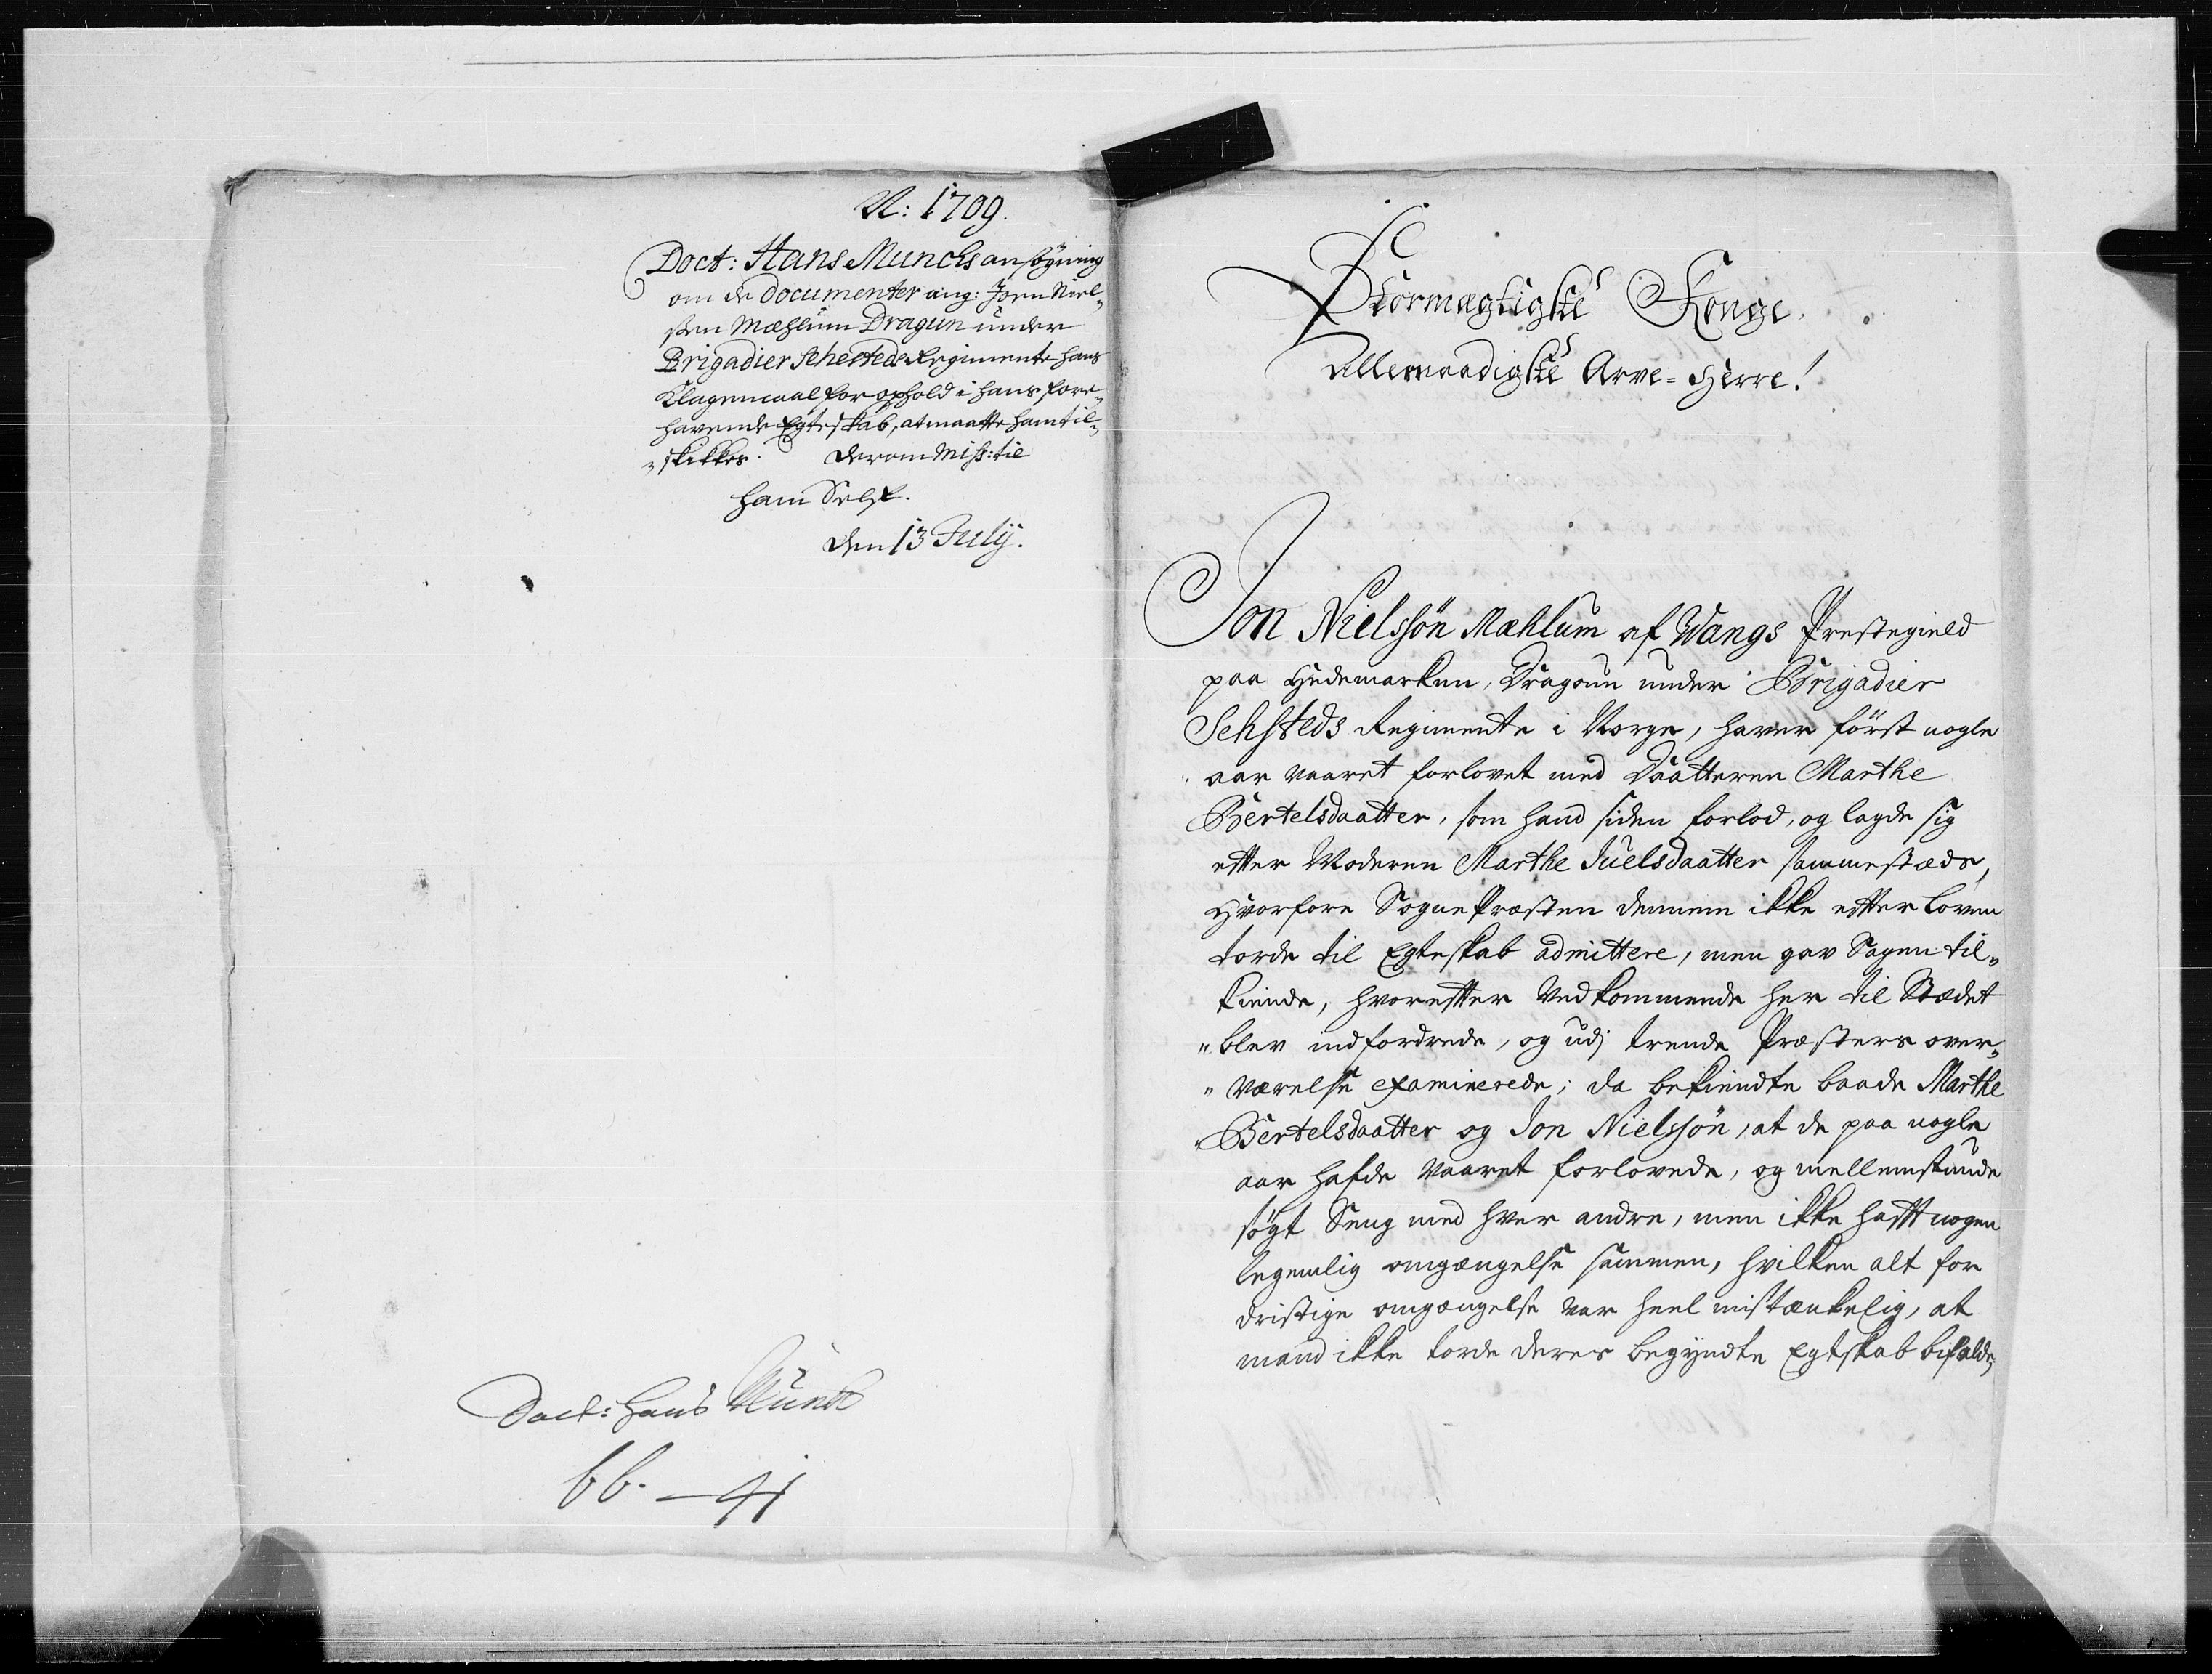 A: 1709.
Doct: Hans Munchs ansögning
om de Documenter ang: Joen Niel„
sen Mæhlum Dragun under
Brigadier Sehesteds Regimente hans
Klagemaal for ophold i hans fore„
havende Egteskab, at maatte ham til„
„skikkes. derom Miss: til
ham Self.
den 13 Julij.
Doct: Hans Munk
66. — 41
Stormægtigste Konge,
Allernaadigste Arve-Herre!
Jon Nielssön Mæhlum af Wangs Prestegield
paa Hedemarken, Dragoun under Brigadier
Sehsteds Regimente i Norge, haver först nogle
aar vaaret forlovet med Daatteren Marthe
Bertelsdaatter, som hand siden forlod, og lagde sig
efter Moderen Marthe Juelsdaatter sammestæds,
Hvorfore SognePræsten dennem ikke efter Loven
torde til Egteskab admittere, men gav Sagen til„
kiende, hvorefter Vedkommende her til Stædet
„blev indfordrede, og udj trende Præsters over„
„værelse examinerede; da bekiendte baade Marthe
„Bertelsdaatter og Jon Nielssön, at de paa nogle
aar hafde vaaret forlovede, og mellemstunde
sögt Seng med hver andre, men ikke hafft nogen
legemlig omgængelse sammen, hvilken alt for
dristige omgængelse var heel mistænkelig, at
mand ikke torde deres begyndte Egtskab bifalde,